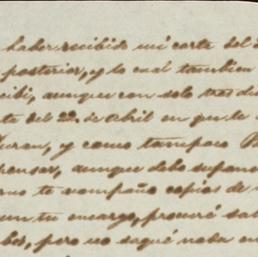 haber recibido mi carta del
posterior, y la cual tambien
cibi, aunque con solo tres di
te del 22 de abril en qe te
Duran, y como tampoco
pensar, aunque debo supone
te acompaño copias de
un tu encargo, procuré sab
ber, pero no saqué nada en